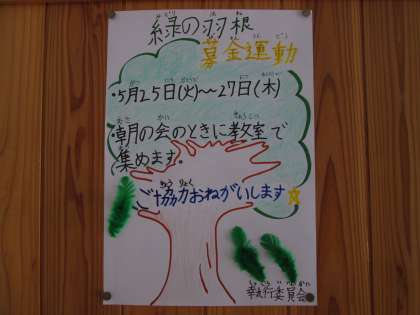 緑の羽根
募金運動
・5月25日(火)～27日(木)
・朝の会のときに教室で
集めます。
ご協力おねがいします☆
執行委員会